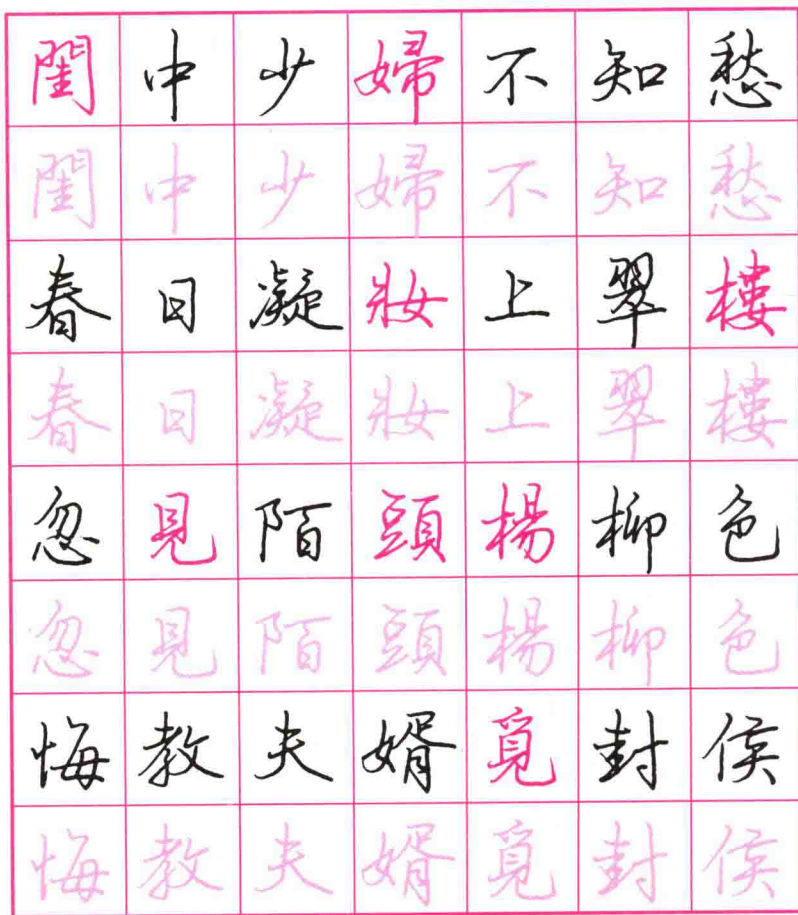 閨中少婦不知愁
閨中少婦不知愁
春日凝妝上翠樓
春日凝妝上翠樓
忽見陌頭楊柳色
忽見陌頭楊柳色
悔教夫婿覓封侯
悔教夫婿覓封侯